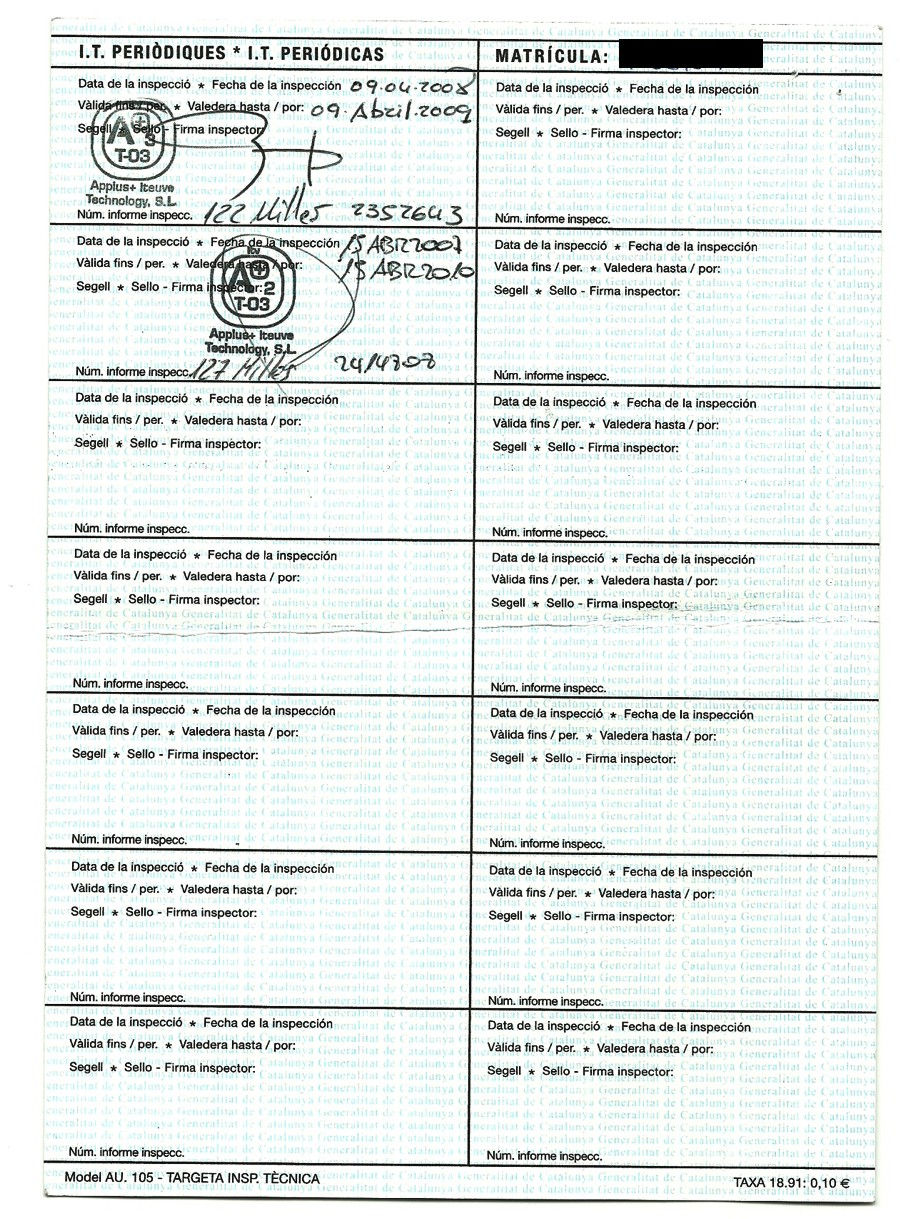 I.T. PERIÒDIQUES * I.T. PERIÓDICAS
MATRÍCULA:
Data de la inspecció * Fecha de la inspección 09.04.2008
Vàlida fins / per. * Valedera hasta / por: 09.Abril.2009
Segell * Sello - Firma inspector:
A+
3
T-03
Applus+ Iteuve
Technology, S.L.
Núm. informe inspecc. 122 Milles 2352643
Data de la inspecció * Fecha de la inspección 15 ABR 2007
Vàlida fins / per. * Valedera hasta / por: 15 ABR 2010
Segell * Sello - Firma inspector: 2
T-03
Applus+ Iteuve
Technology, S.L.
Núm. informe inspecc. 127 Milles
Data de la inspecció * Fecha de la inspección
Vàlida fins / per. * Valedera hasta / por:
Segell * Sello - Firma inspector:
Núm. informe inspecc.
Data de la inspecció * Fecha de la inspección
Vàlida fins / per. * Valedera hasta / por:
Segell * Sello - Firma inspector:
Núm. informe inspecc.
Data de la inspecció * Fecha de la inspección
Vàlida fins / per. * Valedera hasta / por:
Segell * Sello - Firma inspector:
Núm. informe inspecc.
Data de la inspecció * Fecha de la inspección
Vàlida fins / per. * Valedera hasta / por:
Segell * Sello - Firma inspector:
Núm. informe inspecc.
Data de la inspecció * Fecha de la inspección
Vàlida fins / per. * Valedera hasta / por:
Segell * Sello - Firma inspector:
Núm. informe inspecc.
Data de la inspecció * Fecha de la inspección
Vàlida fins / per. * Valedera hasta / por:
Segell * Sello - Firma inspector:
Núm. informe inspecc.
Data de la inspecció * Fecha de la inspección
Vàlida fins / per. * Valedera hasta / por:
Segell * Sello - Firma inspector:
Núm. informe inspecc.
Data de la inspecció * Fecha de la inspección
Vàlida fins / per. * Valedera hasta / por:
Segell * Sello - Firma inspector:
Núm. informe inspecc.
Data de la inspecció * Fecha de la inspección
Vàlida fins / per. * Valedera hasta / por:
Segell * Sello - Firma inspector:
Núm. informe inspecc.
Data de la inspecció * Fecha de la inspección
Vàlida fins / per. * Valedera hasta / por:
Segell * Sello - Firma inspector:
Núm. informe inspecc.
Data de la inspecció * Fecha de la inspección
Vàlida fins / per. * Valedera hasta / por:
Segell * Sello - Firma inspector:
Núm. informe inspecc.
Data de la inspecció * Fecha de la inspección
Vàlida fins / per. * Valedera hasta / por:
Segell * Sello - Firma inspector:
Núm. informe inspecc.
Model AU. 105 - TARGETA INSP. TÈCNICA
TAXA 18.91: 0,10 €